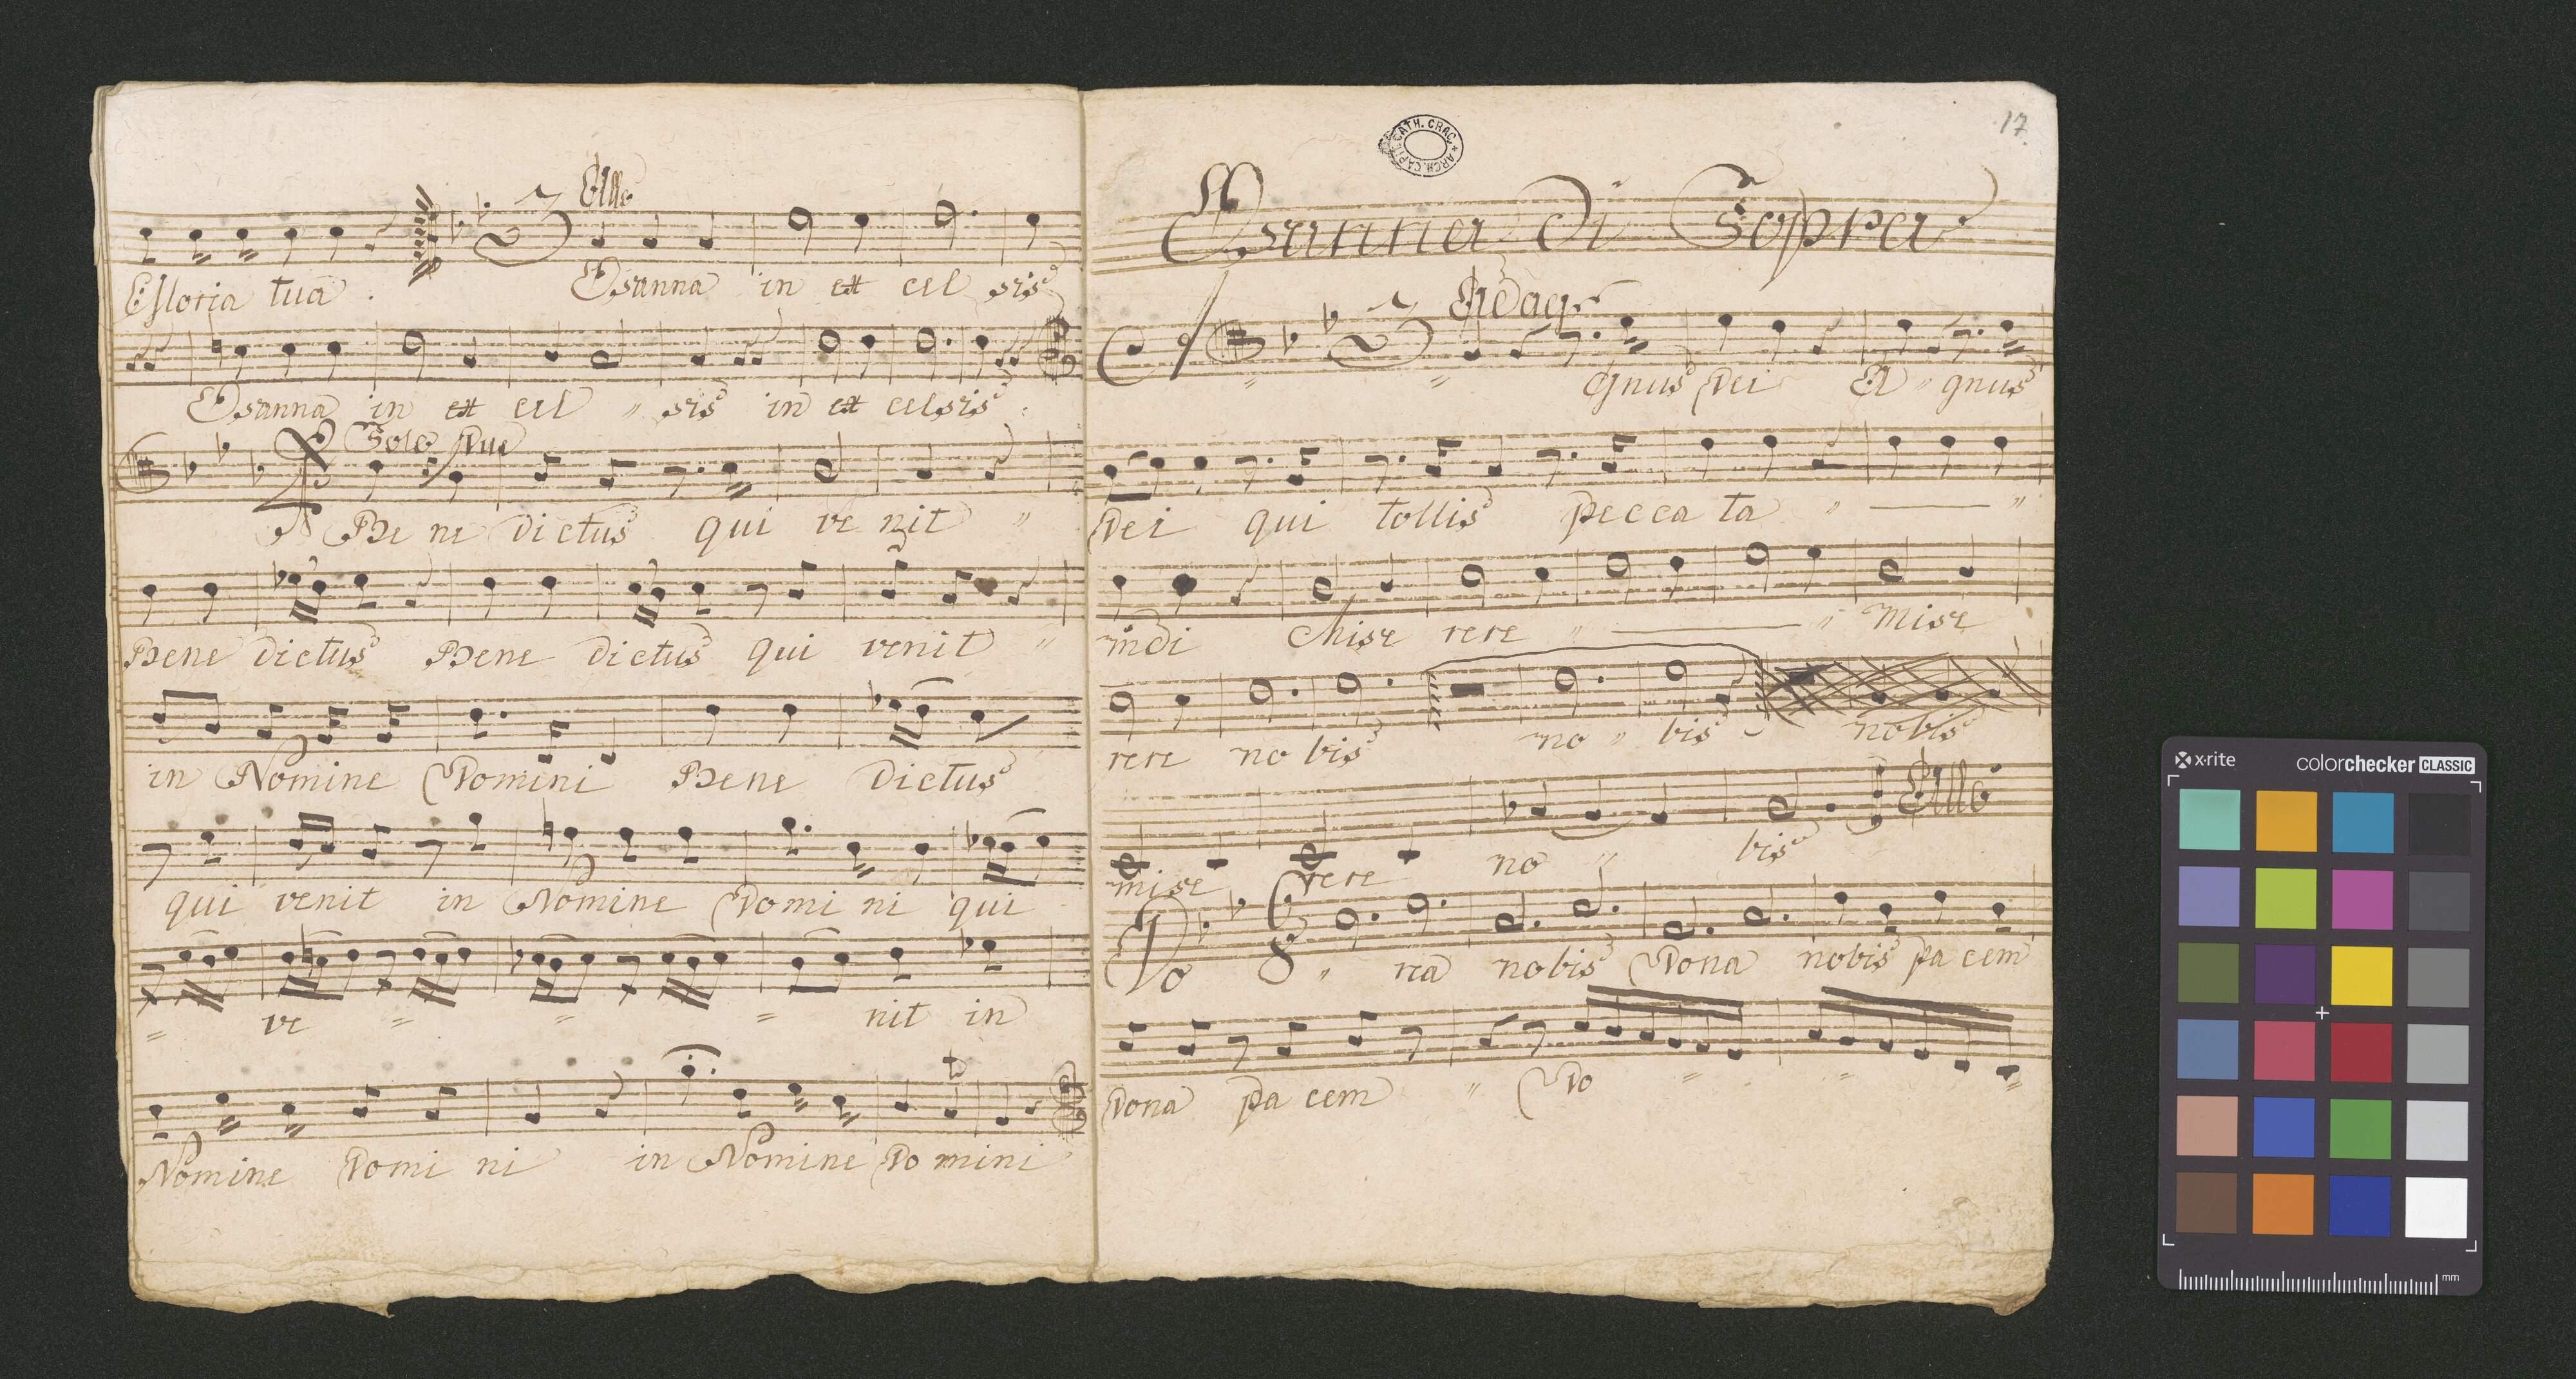 All.
Gloria tua.
Osanna in ex cel sis
Osanna in ex cel " sis in ex celsis.
Solo Due
Be ne dictus qui ve nit "
Bene dictus Bene dictus qui venit "
in Nomine Domini Bene dictus
qui venit in Nomine Domi ni qui
ve nit in
Nomine Domi ni in Nomine Do mini
17
CATH. CRAC. ARCH. CAPIT.
Osanna Di Sopra
3
Adag.
gnus Dei A " gnus
Dei qui tollis pecca ta "
mdi Mise rere " " Mise
rere no bis no " bis nobis
mise rere no " bis
All.
6
8
Do " na nobis Dona nobis pa cem
Dona pa cem " Do
x-rite colorchecker CLASSIC
mm